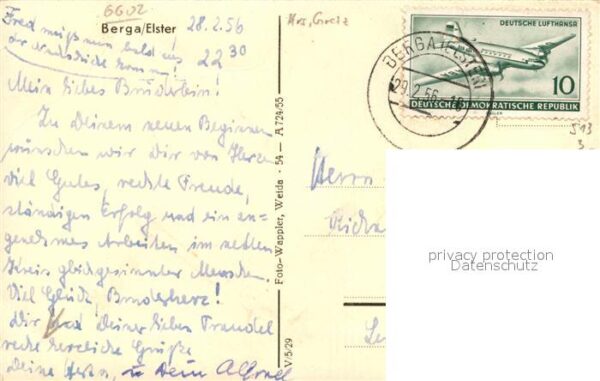 6602
Berga/Elster 28.2.56
22 30
Fred weiß nun bald
Mein liebes Brüderlein!
Zu Deinem neuen Beginnen
wünschen wir Dir von Herzen
viel Gutes, rechte Freude,
ständigen Erfolg und ein an-
genehmes Arbeiten im netten
Kreis gleichgesinnter Menschen.
Viel Glück, Bruderherz!
Dir und Deiner lieben Traudel
recht herzliche Grüße
Deine u. Dein
Foto-Wappler, Weida · 54 - A 724/55
V/5/29
Krs. Greiz
BERGA (ELSTER)
29.2.56
DEUTSCHE LUFTHANSA
10
DEUTSCHE DEMOKRATISCHE REPUBLIK
513
3
Herrn
privacy protection
Datenschutz